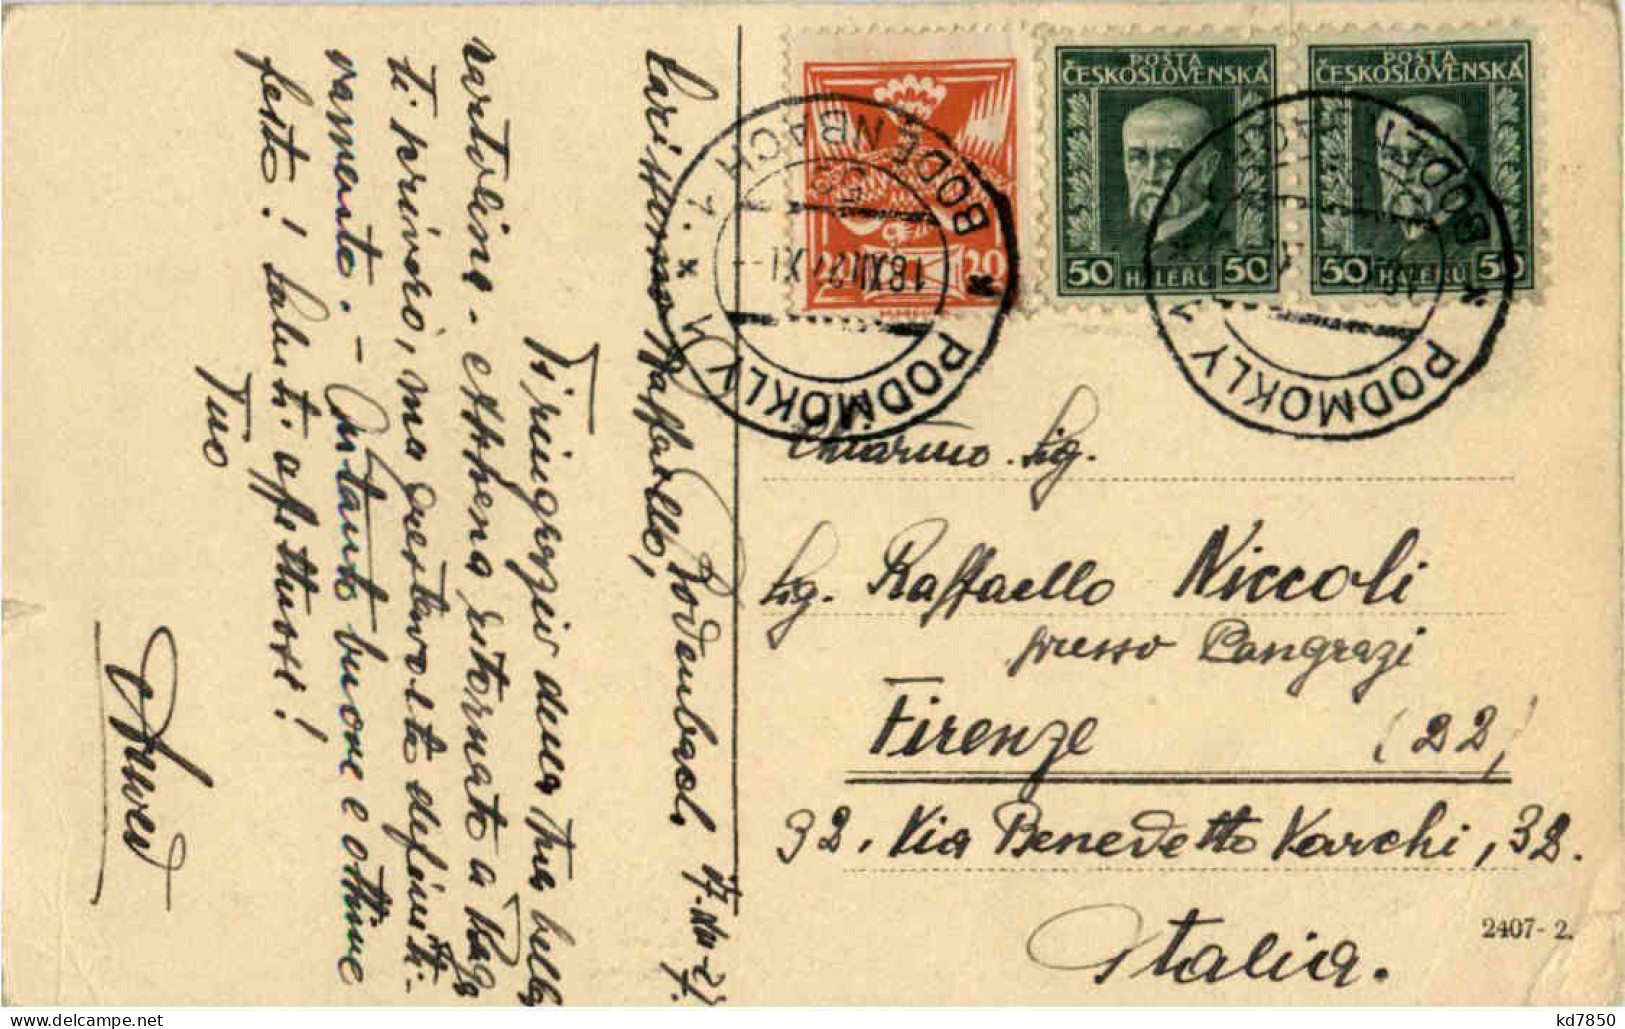 Bodenbach, 17.XII-27.
Carissimo Raffaello,
Ti ringrazio della tua bella
cartolina - Appena ritornato a Praga
ti scriverò, ma questa volta definiti-
vamente. - Intanto buone e ottime
feste! Saluti affettuosi!
Tuo
POŠTA
ČESKOSLOVENSKÁ
50 HALÉŘŮ 50
POŠTA
ČESKOSLOVENSKÁ
50 HALÉŘŮ 50
20 20
PODMOKLY 1
BODENBACH 1
18.XII.27
PODMOKLY 1
Chiarmo Sig.
Sig. Raffaello Niccoli
presso Pangrazi
Firenze (22)
32. Via Benedetto Varchi, 32.
Italia.
2407-2.
kd7850